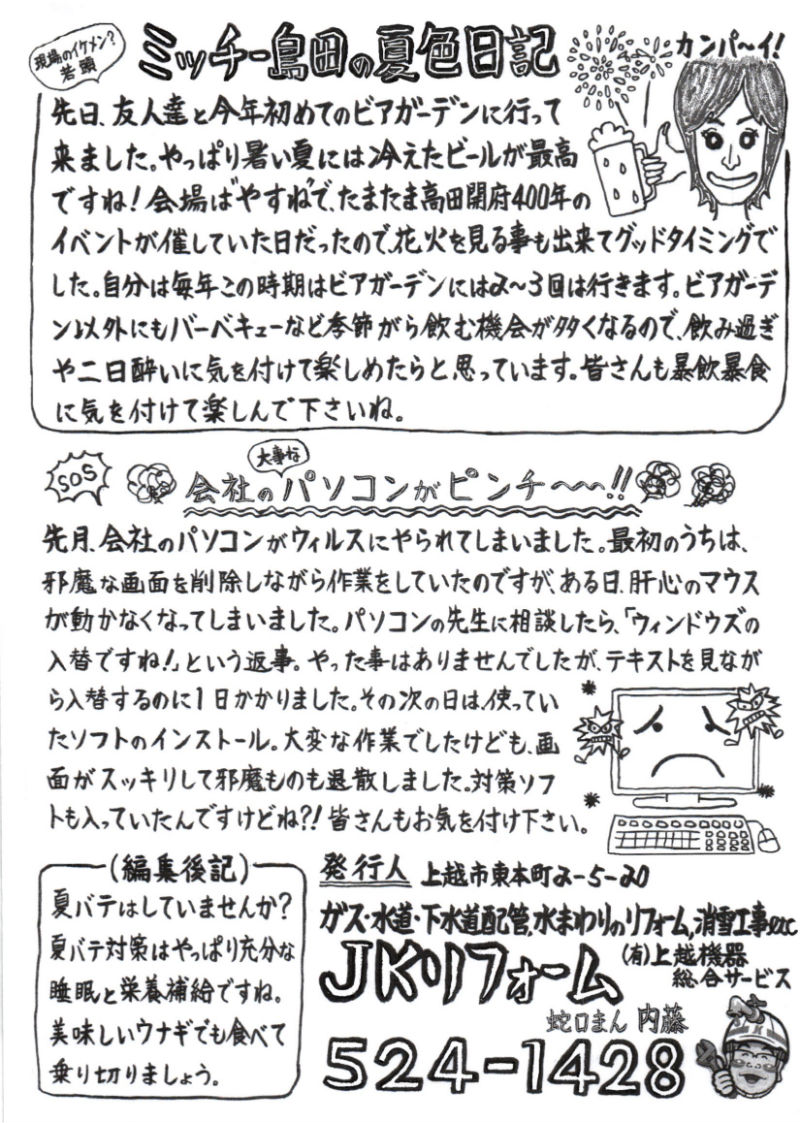 現場のイケメン?
若頭
ミッチー島田の夏色日記
カンパ〜イ!
先日、友人達と今年初めてのビアガーデンに行って
来ました。やっぱり暑い夏には冷えたビールが最高
ですね!会場は"やすね"で、たまたま高田開府400年の
イベントが催していた日だったので、花火を見る事も出来てグッドタイミングで
した。自分は毎年この時期はビアガーデンには2〜3回は行きます。ビアガーデ
ン以外にもバーベキューなど季節がら飲む機会が多くなるので、飲み過ぎ
や二日酔いに気を付けて楽しめたらと思っています。皆さんも暴飲暴食
に気を付けて楽しんで下さいね。
SOS
大事な
会社のパソコンがピンチ〜〜!!
先月、会社のパソコンがウィルスにやられてしまいました。最初のうちは、
邪魔な画面を削除しながら作業をしていたのですが、ある日、肝心のマウス
が動かなくなってしまいました。パソコンの先生に相談したら、「ウィンドウズの
入替ですね!」という返事。やった事はありませんでしたが、テキストを見なが
ら入替するのに1日かかりました。その次の日は、使ってい
たソフトのインストール。大変な作業でしたけども、画
面がスッキリして邪魔ものも退散しました。対策ソフ
トも入っていたんですけどね?!皆さんもお気を付け下さい。
(編集後記)
夏バテはしていませんか?
夏バテ対策はやっぱり充分な
睡眠と栄養補給ですね。
美味しいウナギでも食べて
乗り切りましょう。
発行人 上越市東本町2-5-20
ガス・水道・下水道配管,水まわりのリフォーム,消雪工事etc
JKリフォーム
(有)上越機器
総合サービス
蛇口まん 内藤
524-1428